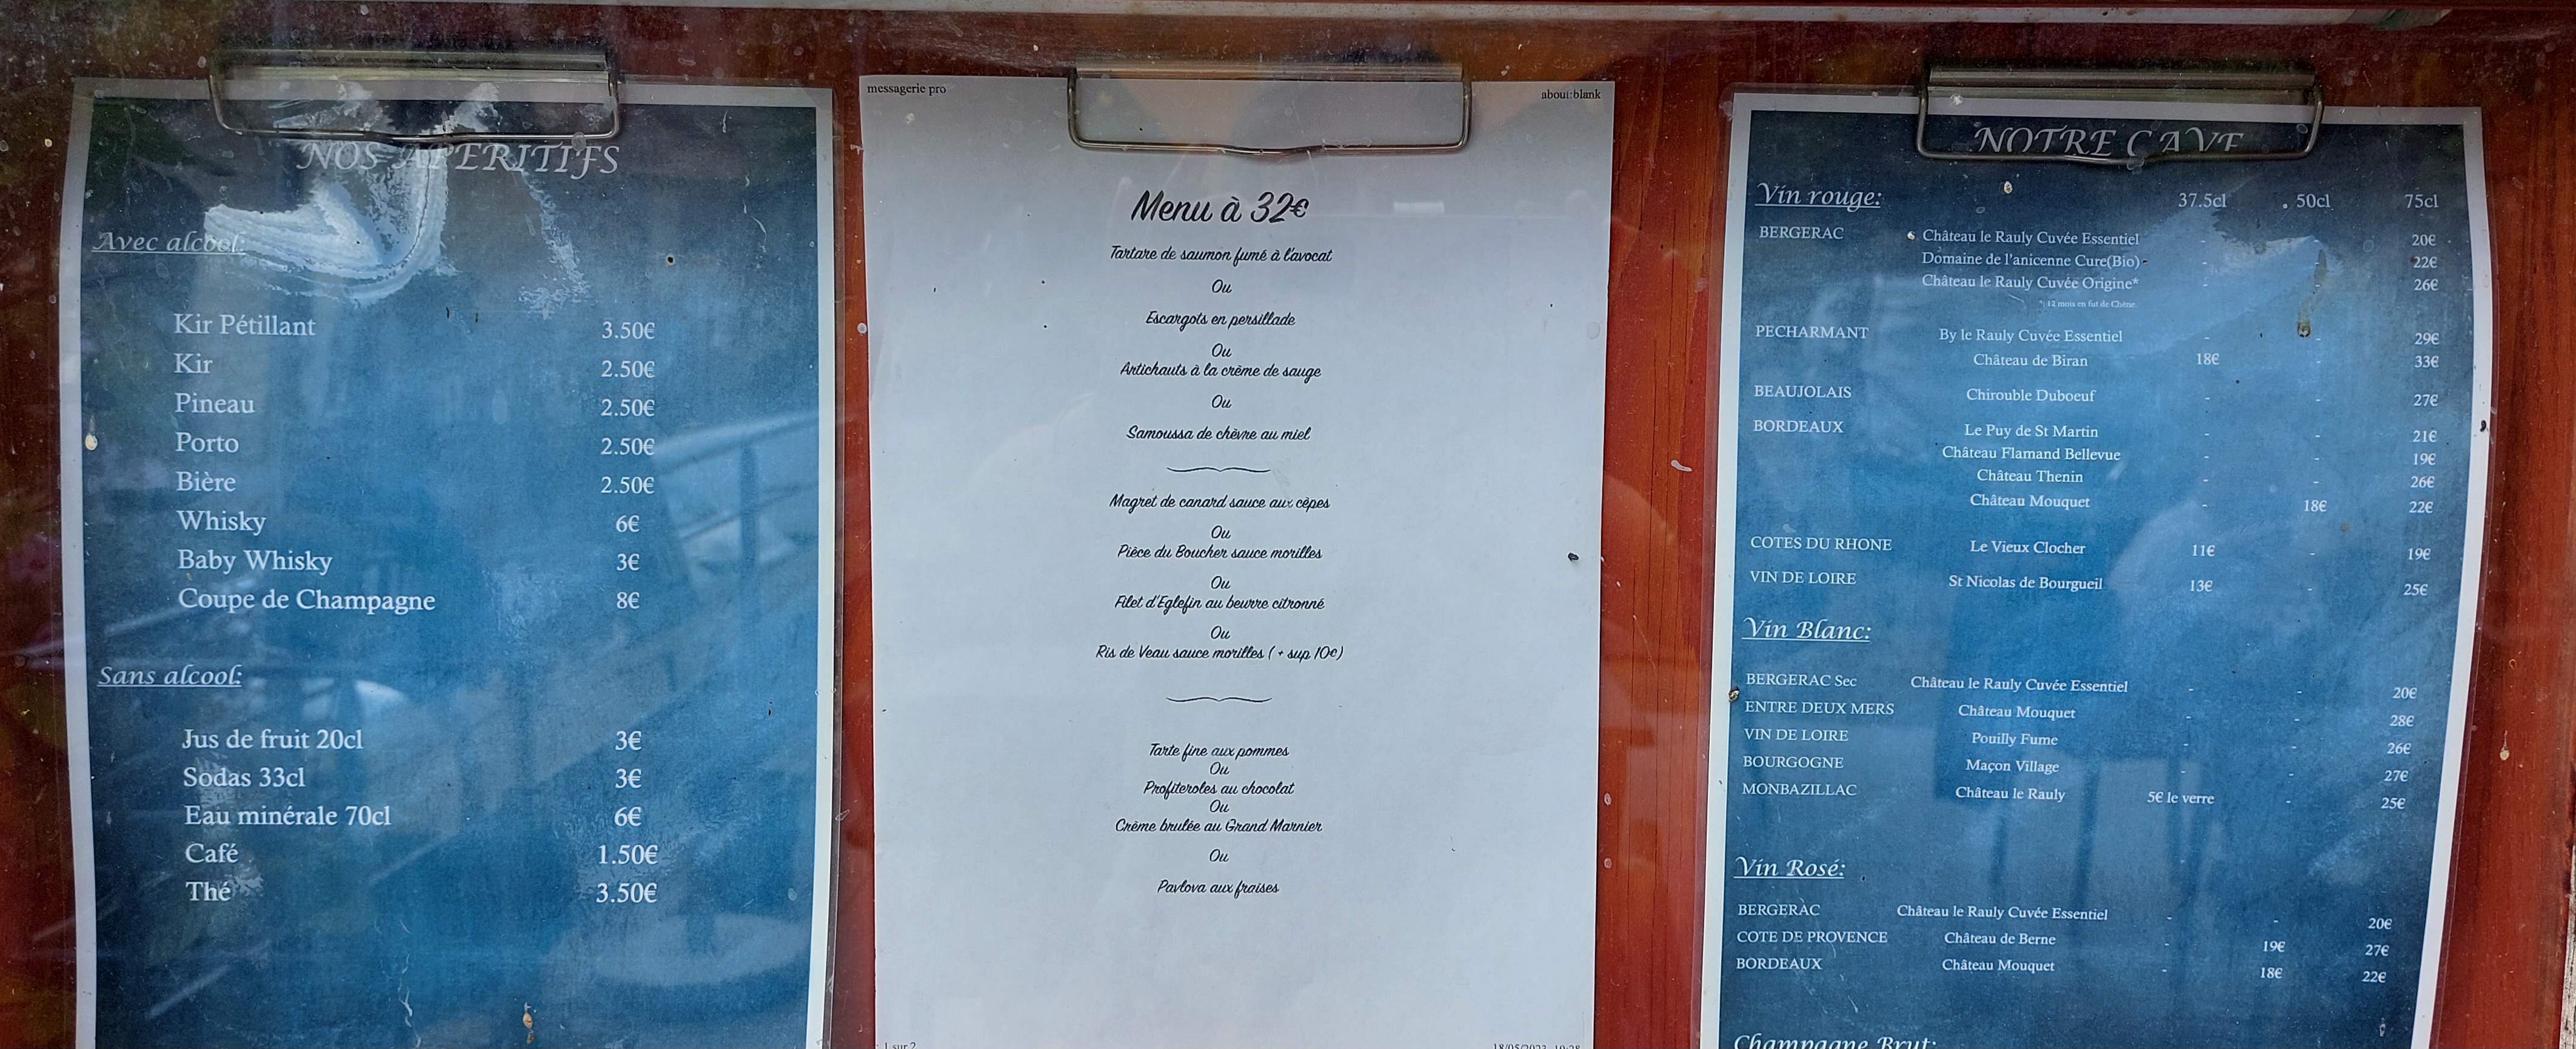 NOS APERITIFS
Avec alcool:
Kir Pétillant 3.50€
Kir 2.50€
Pineau 2.50€
Porto 2.50€
Bière 2.50€
Whisky 6€
Baby Whisky 3€
Coupe de Champagne 8€
Sans alcool:
Jus de fruit 20cl 3€
Sodas 33cl 3€
Eau minérale 70cl 6€
Café 1.50€
Thé 3.50€
messagerie pro about:blank
Menu à 32€
Tartare de saumon fumé à l'avocat
Ou
Escargots en persillade
Ou
Artichauts à la crème de sauge
Ou
Samoussa de chèvre au miel
Magret de canard sauce aux cèpes
Ou
Pièce du Boucher sauce morilles
Ou
Filet d'Eglefin au beurre citronné
Ou
Ris de Veau sauce morilles ( + sup 10€)
Tarte fine aux pommes
Ou
Profiteroles au chocolat
Ou
Crème brulée au Grand Marnier
Ou
Pavlova aux fraises
1 sur 2
NOTRE CAVE
Vin rouge: 37.5cl 50cl 75cl
BERGERAC Château le Rauly Cuvée Essentiel - - 20€
Domaine de l'anicenne Cure(Bio) - - 22€
Château le Rauly Cuvée Origine* - - 26€
*: 12 mois en fut de Chêne
PECHARMANT By le Rauly Cuvée Essentiel - - 29€
Château de Biran 18€ - 33€
BEAUJOLAIS Chirouble Duboeuf - - 27€
BORDEAUX Le Puy de St Martin - - 21€
Château Flamand Bellevue - - 19€
Château Thenin - - 26€
Château Mouquet - 18€ 22€
COTES DU RHONE Le Vieux Clocher 11€ - 19€
VIN DE LOIRE St Nicolas de Bourgueil 13€ - 25€
Vin Blanc:
BERGERAC Sec Château le Rauly Cuvée Essentiel - - 20€
ENTRE DEUX MERS Château Mouquet - - 28€
VIN DE LOIRE Pouilly Fume - - 26€
BOURGOGNE Maçon Village - - 27€
MONBAZILLAC Château le Rauly 5€ le verre - 25€
Vin Rosé:
BERGERAC Château le Rauly Cuvée Essentiel - - 20€
COTE DE PROVENCE Château de Berne - 19€ 27€
BORDEAUX Château Mouquet - 18€ 22€
Champagne Brut: